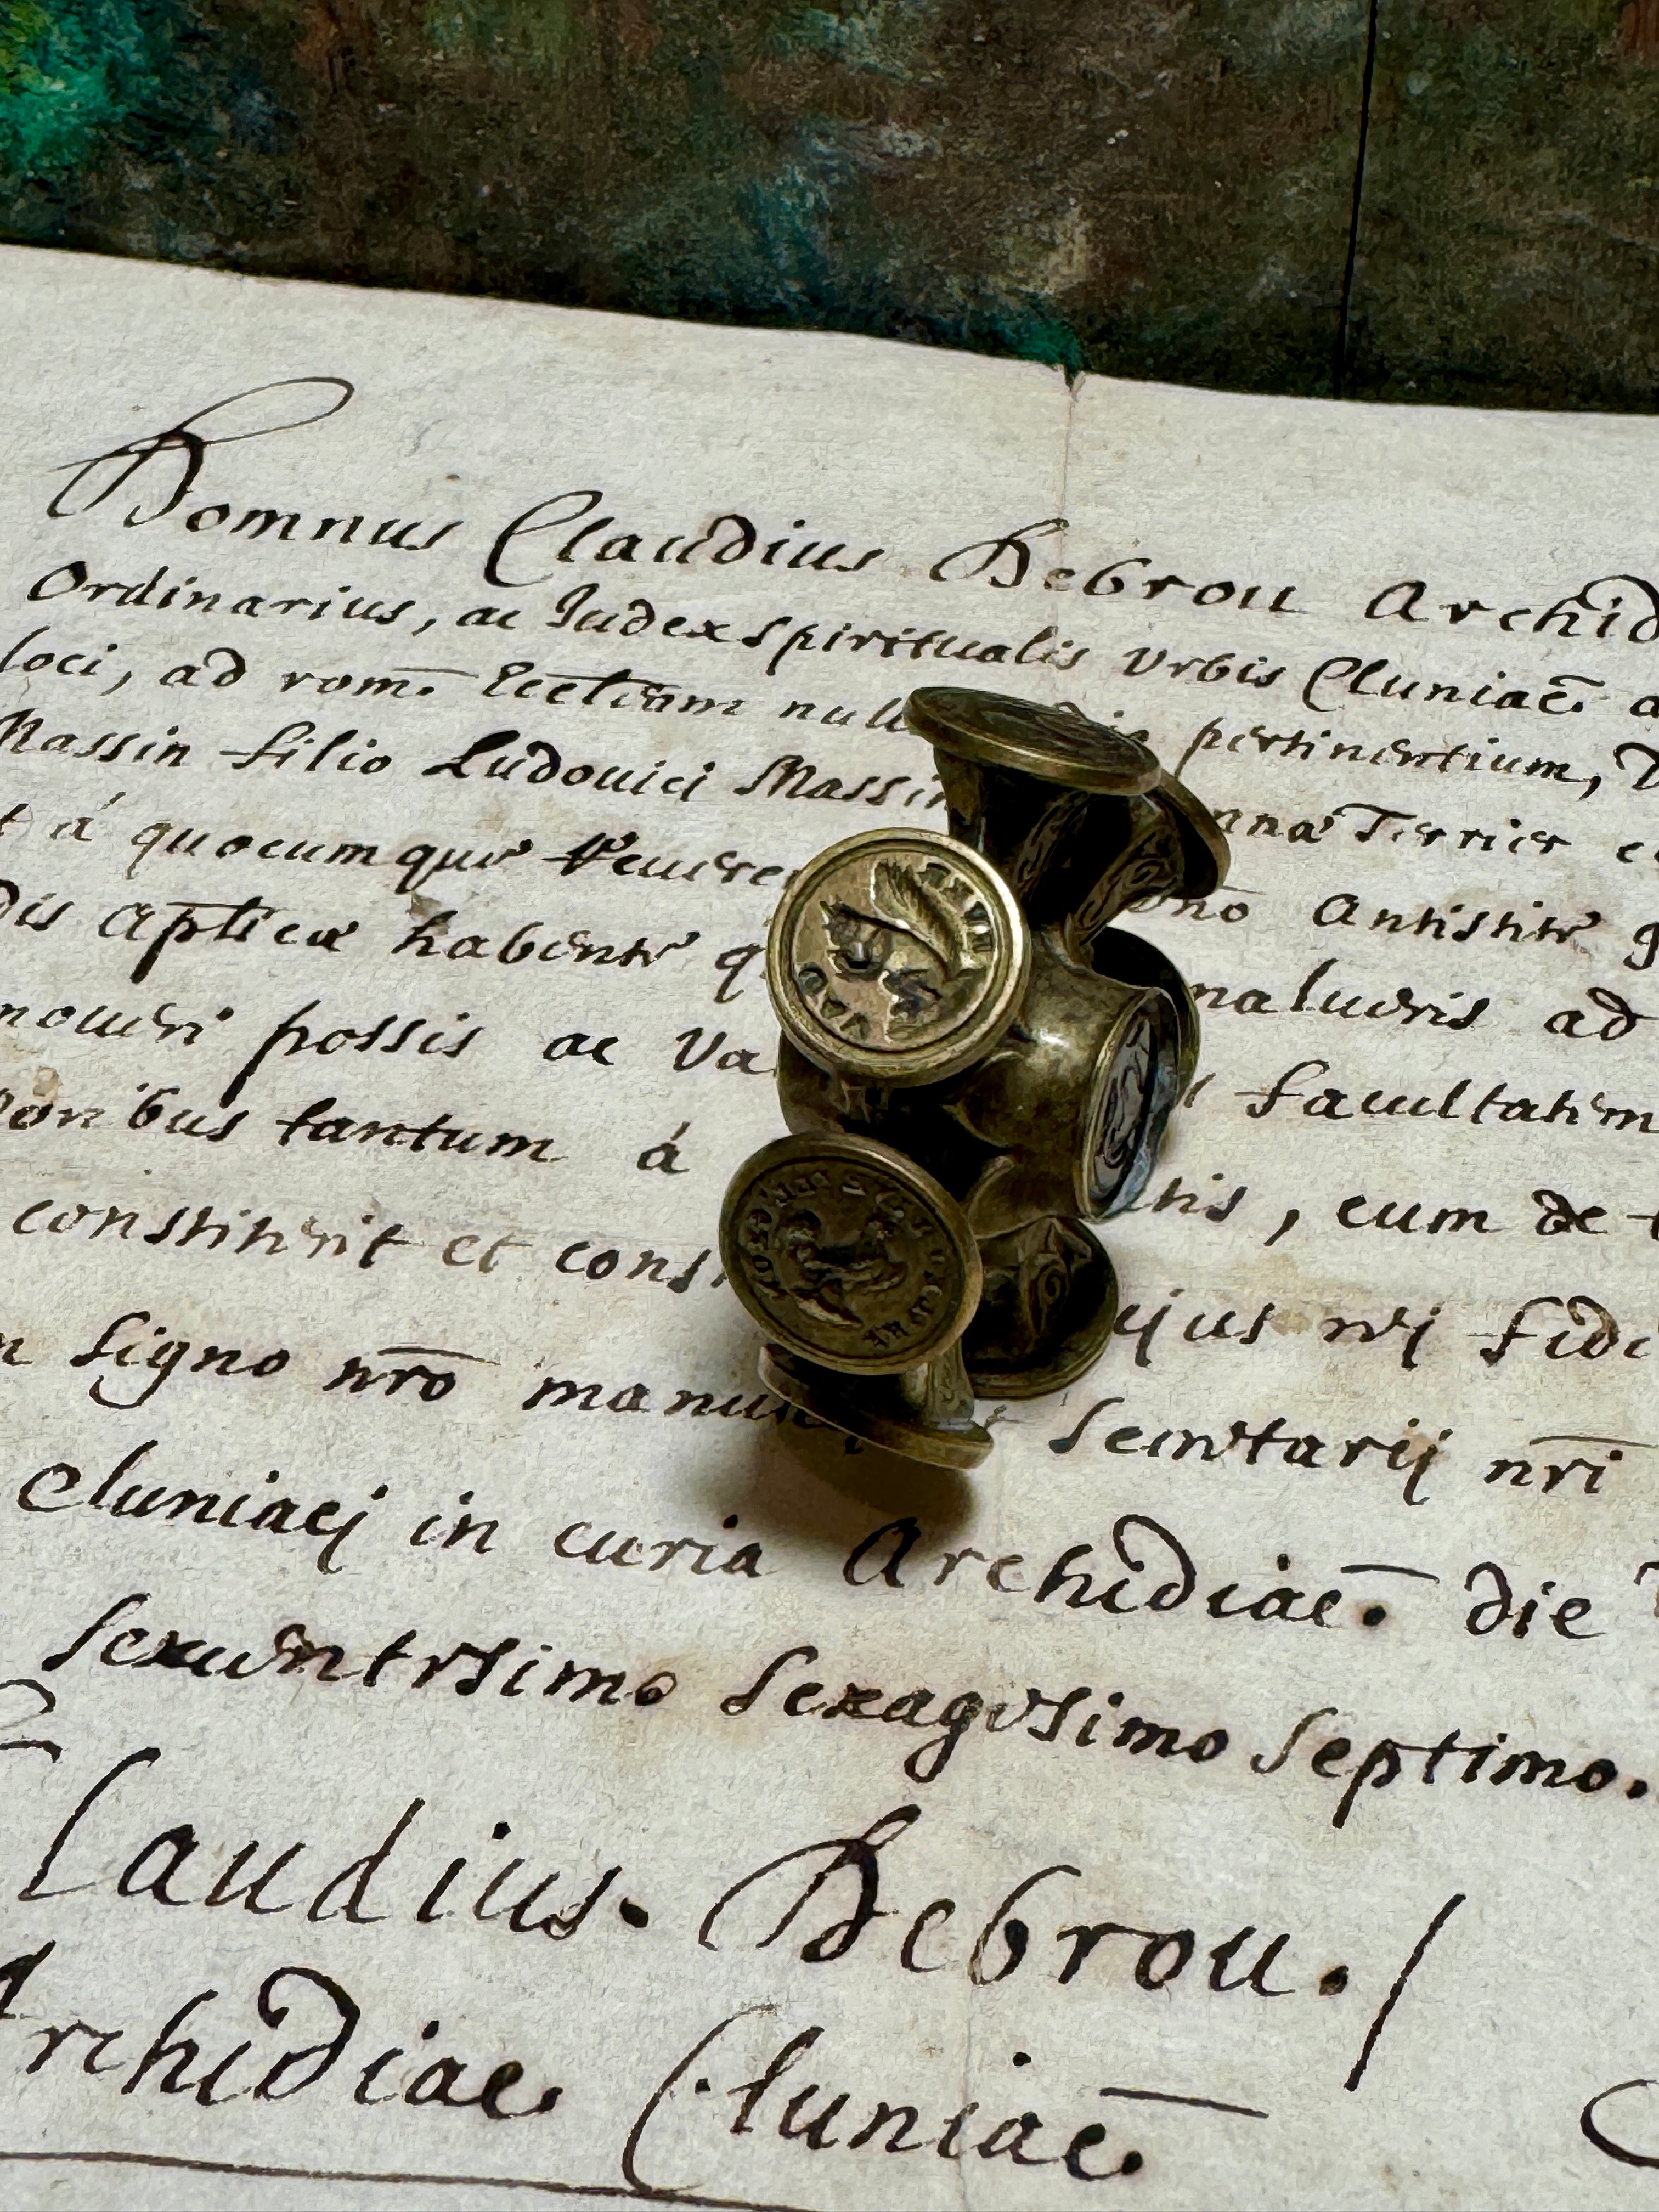 Domnus Claudius Debrou Archid
Ordinarius, ac Iudex spiritualis Vrbis Cluniac̄.
loci, ad rom̄. Eccl̄iam null pertinentium,
Massin filio Ludouici Massin nna Terrier
á quocumque no Antistite
Aplicæ habente nalueris ad
moueri possis ac Va facultatem
onibus tantum á tis, cum de
constiterit et cons ejus rej fide
signo nr̄o manu Secretarij nr̄i
Cluniacj in curia Archidiac̄. die
sexcentesimo sexagesimo septimo.
Claudius. Debrou./
Archidiac. Cluniac̄.